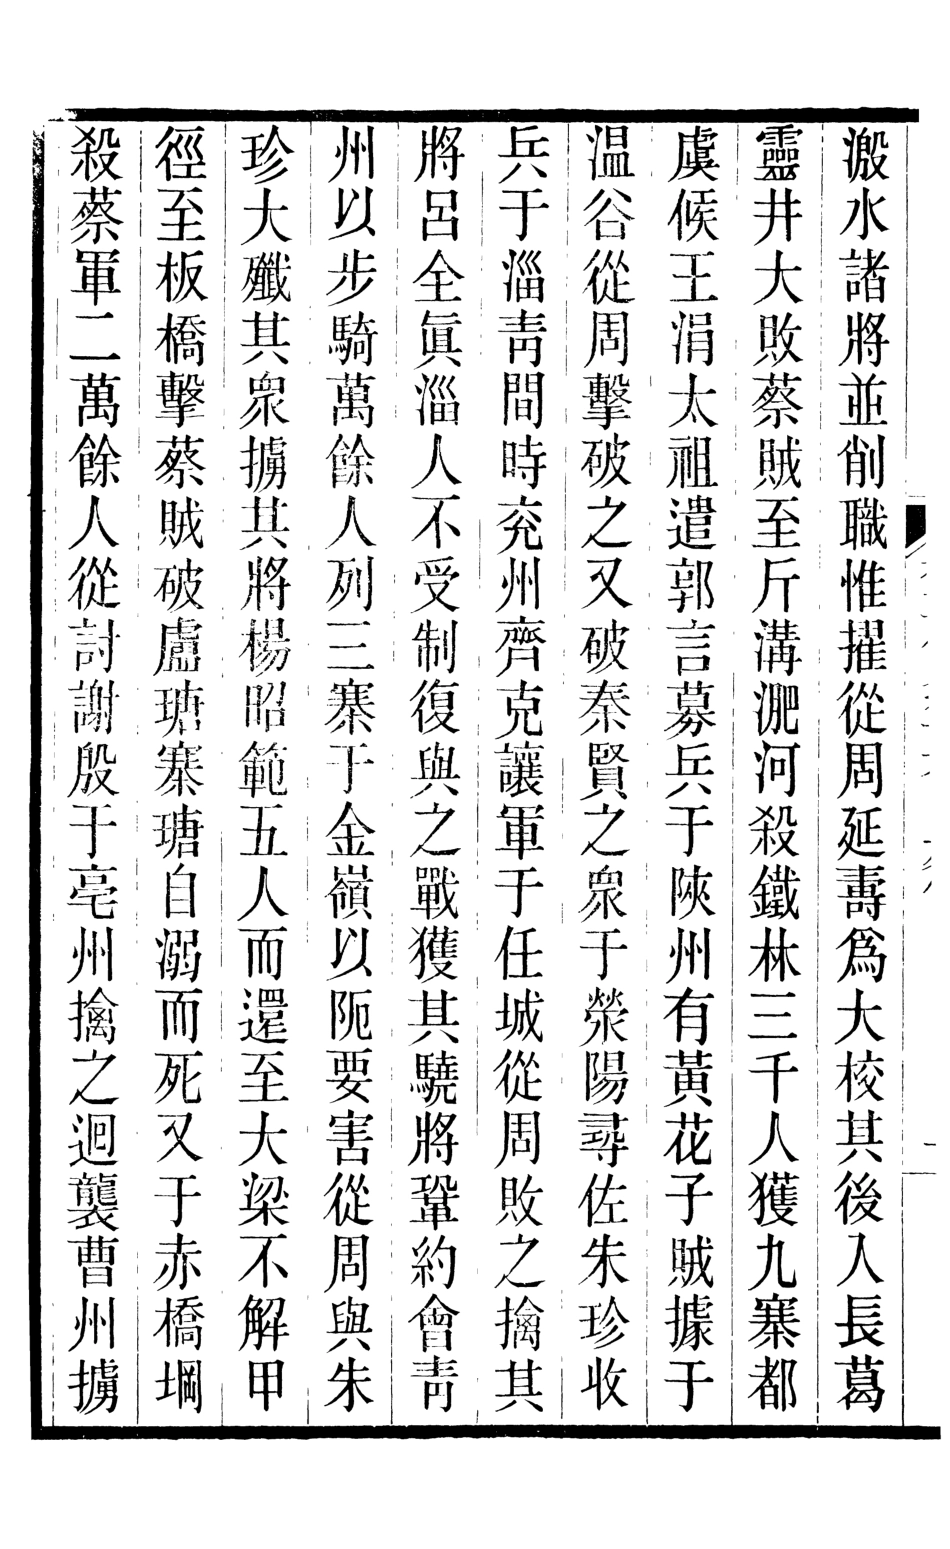 溵水諸將並削職惟擢從周延壽爲大校其後入長葛
靈井大敗蔡賊至斤溝淝河殺鐵林三千人獲九寨都
虞候王涓太祖遣郭言募兵于陝州有黃花子賊據于
温谷從周擊破之又破秦賢之衆于滎陽尋佐朱珍收
兵于淄靑間時兖州齊克讓軍于任城從周敗之擒其
將呂全眞淄人不受制復與之戰獲其驍將鞏約會靑
州以步騎萬餘人列三寨于金嶺以阨要害從周與朱
珍大殲其衆擄其將楊昭範五人而還至大梁不解甲
徑至板橋擊蔡賊破盧瑭寨瑭自溺而死又于赤橋堈
殺蔡軍二萬餘人從討謝殷于亳州擒之迴襲曹州擄